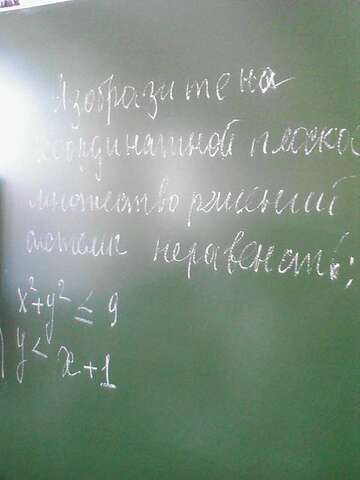 Изобразите на
координатной плоско
множество решений
системы неравенств:
x²+y² ≤ 9
y < x+1